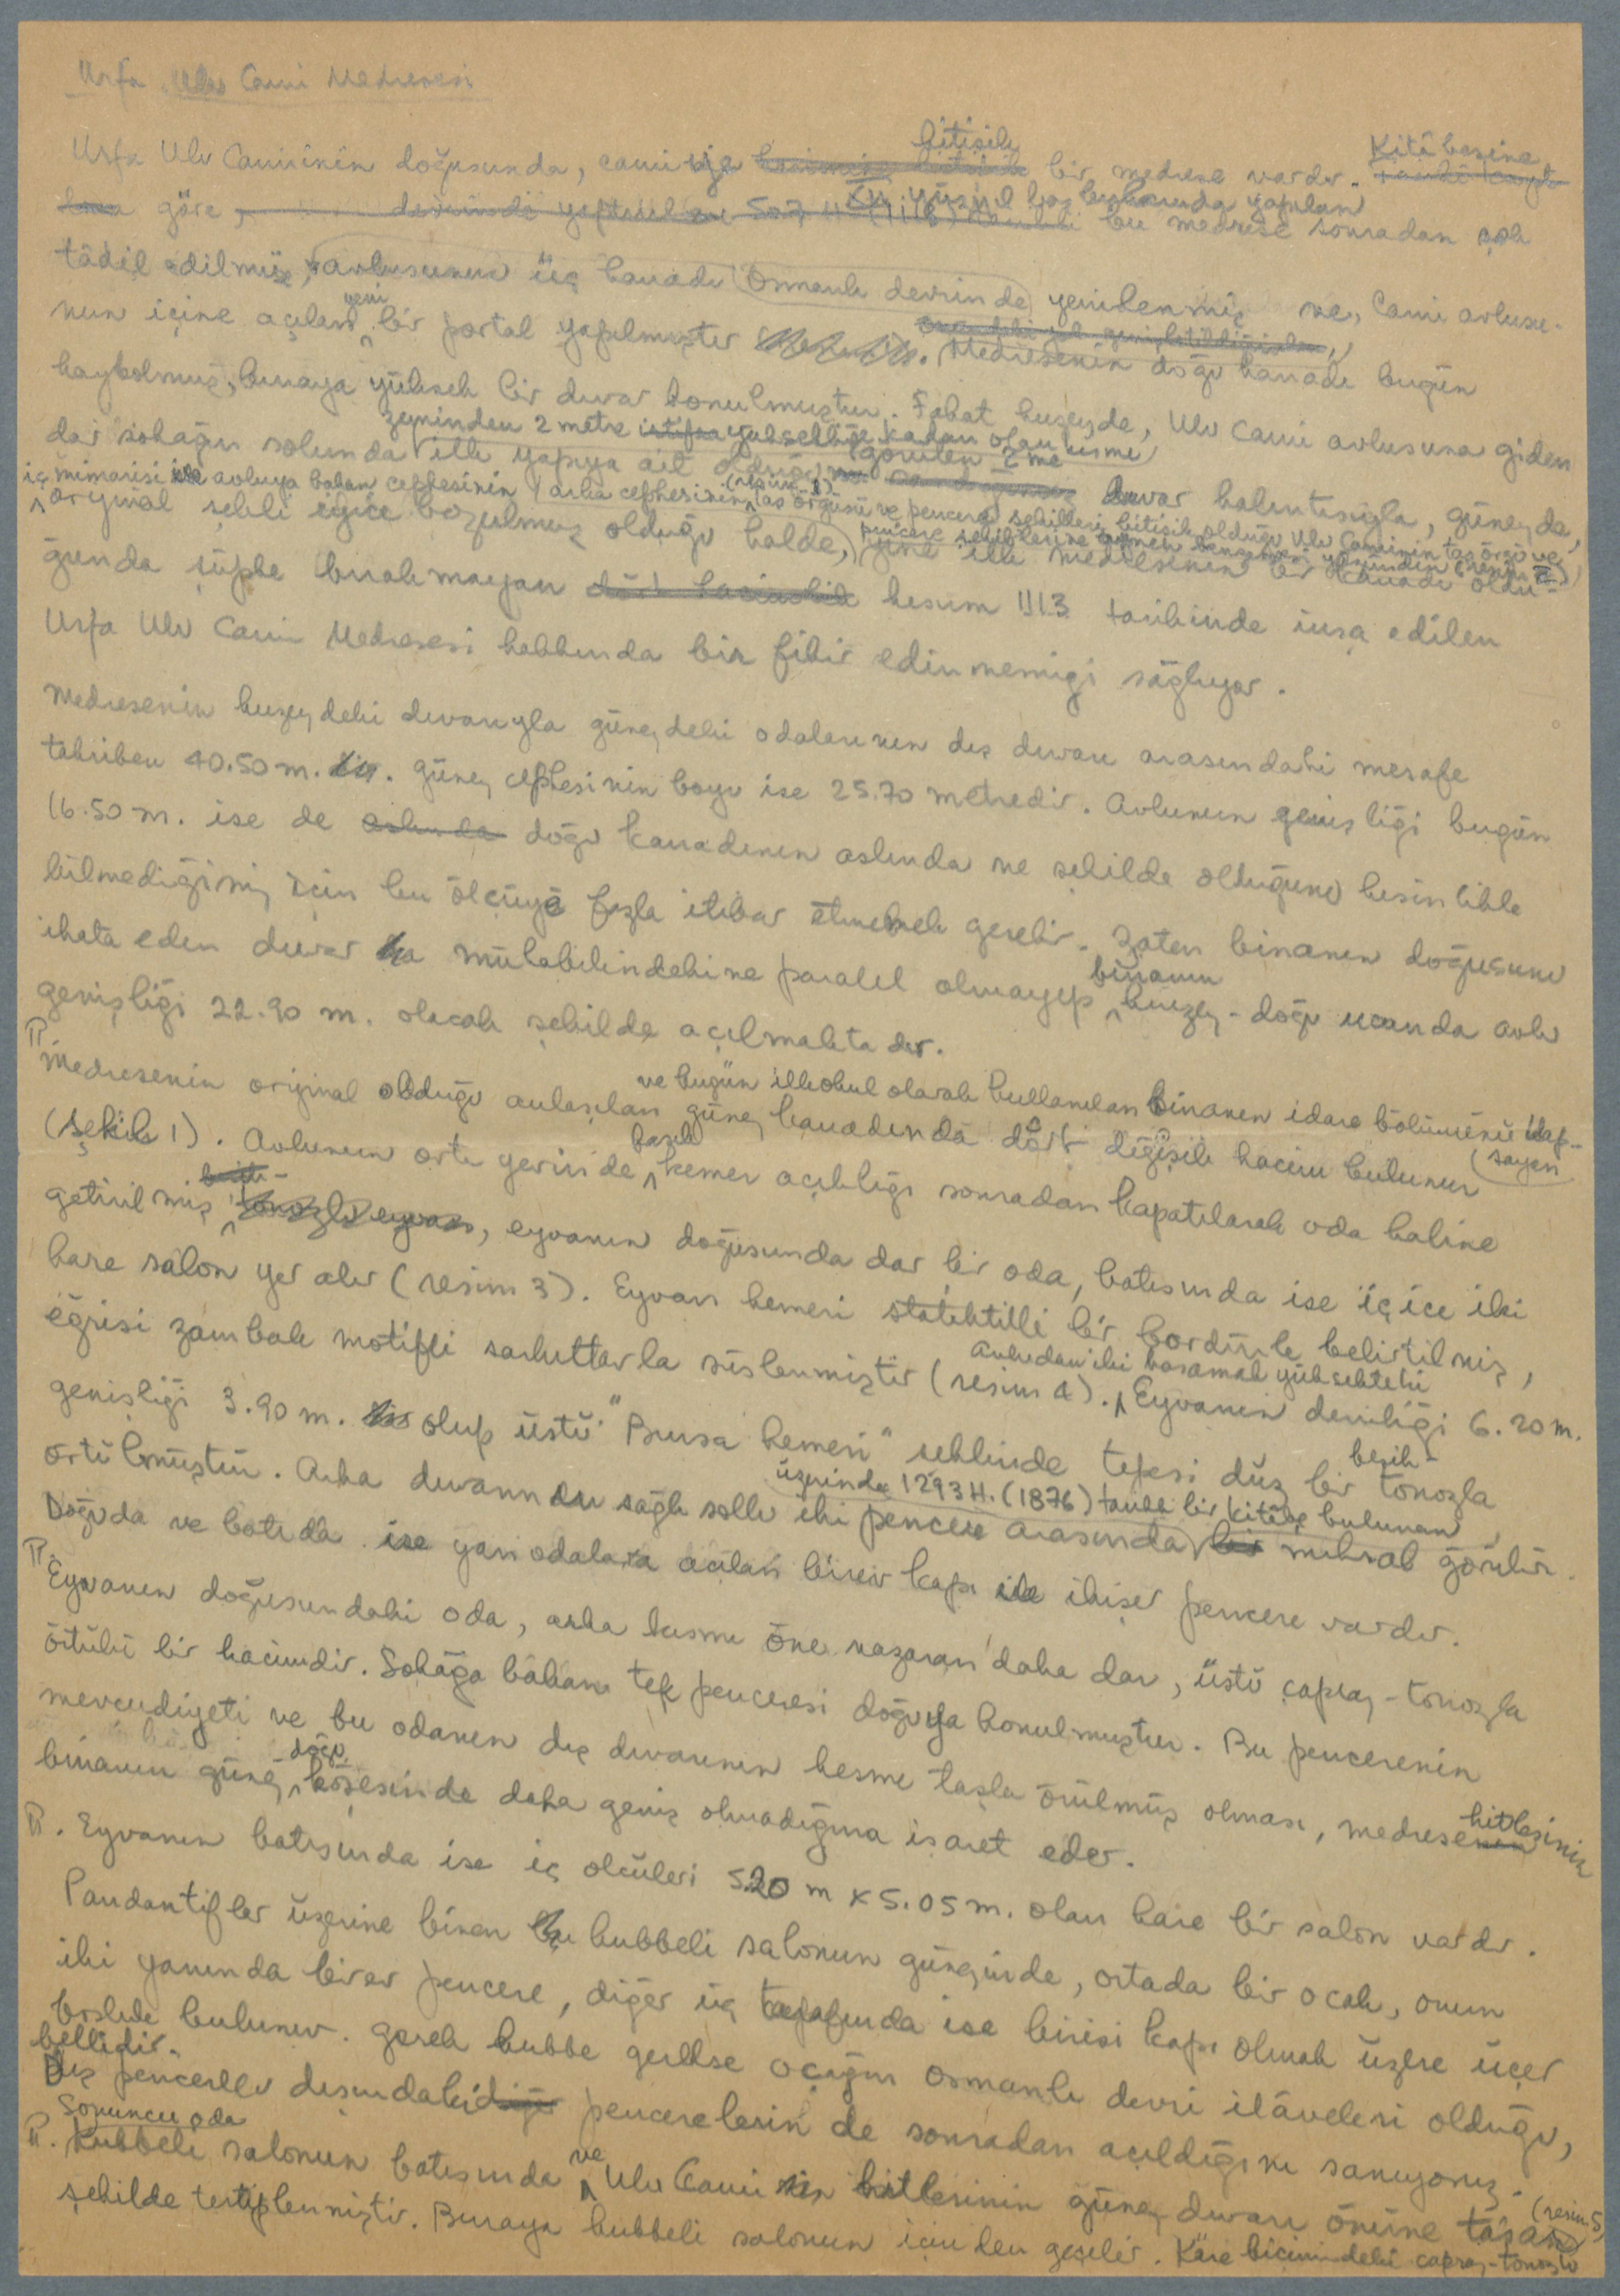 Urfa Ulu Cami Medresesi
Urfa Ulu Caminin doğusunda, camiye bitişik bir medrese vardır. Kitâbesine
göre, XII yüzyıl baş yapılan bu medrese sonradan çok
tâdil edilmiş, avlusunun üç kanadı Osmanlı devrinde yenilenmiş ve, Cami avlusu-
nun içine açılan yeni bir portal yapılmıştır. Medresenin doğu kanadı bugün
kaybolmuş, buraya yüksek bir duvar konulmuştur. Fakat kuzeyde, Ulu Cami avlusuna giden
dar sokağın solunda zeminden 2 metre yüksekliğe kadar olan kısmı ilk yapıya ait görülen duvar kalıntısıyla, güneyde,
iç mimarisi ve avluya bakan cephesinin orijinal şekli iyice bozulmuş olduğu halde, (arka cephesinin taş örgüsü ve pencere şekilleri bitişik olduğu Ulu Caminin taş örgü ve
pencere şekillerine benzemesi yüzünden) yine ilk medresenin bir kanadı oldu-
ğunda şüphe bırakmayan kısım 1113 tarihinde inşa edilen
Urfa Ulu Cami Medresesi hakkında bir fikir edinmemizi sağlıyor.
Medresenin kuzeydeki duvarıyla güneydeki odalarının dış duvarı arasındaki mesafe
takriben 40.50 m. güney cephesinin boyu ise 25.70 metredir. Avlunun genişliği bugün
16.50 m. ise de doğu kanadının aslında ne şekilde olduğunu kesinlikle
bilmediğimiz için bu ölçüye fazla itibar etmemek gerekir. Zaten binanın doğusunu
ihata eden duvar mukabilindekine paralel olmayıp binanın kuzey-doğu ucunda avlu
genişliği 22.90 m. olacak şekilde açılmaktadır.
Medresenin orijinal olduğu anlaşılan ve bugün ilkokul olarak kullanılan binanın idare bölümünü kap-
sayan güney kanadında dört değişik hacim bulunur
(Şekil 1). Avlunun orta yerinde basık kemer açıklığı sonradan kapatılarak oda haline
getirilmiş, eyvanın doğusunda dar bir oda, batısında ise içiçe iki
kare salon yer alır (resim 3). Eyvan kemeri stalaktitli bir bordürle belirtilmiş,
eğrisi zambak motifli sarkıtlarla süslenmiştir (resim 4). Avludan iki basamak yüksekteki Eyvanın derinliği 6.20 m.
genişliği 3.90 m. olup üstü "Bursa kemeri" şeklinde tepesi düz bir beşik-tonozla
örtülmüştür. Arka duvarında sağlı sollu iki pencere arasında üzerinde 1293 H. (1876) tarihli bir kitâbe bulunan mihrab görülür.
Doğuda ve batıda ise yan odalara açılan birer kapı ile ikişer pencere vardır.
Eyvanın doğusundaki oda, arka kısmı öne nazaran daha dar, üstü çapraz-tonozla
örtülü bir hacimdir. Sokağa bakan tek penceresi doğuya konulmuştur. Bu pencerenin
mevcudiyeti ve bu odanın dış duvarının kesme taşla örülmüş olması, medrese kitlesinin
binanın güney doğu köşesinde daha geniş olmadığına işaret eder.
Eyvanın batısında ise iç ölçüleri 5.20 m x 5.05 m. olan kare bir salon vardır.
Pandantifler üzerine binen kubbeli salonun güneyinde, ortada bir ocak, onun
iki yanında birer pencere, diğer üç tarafında ise birisi kapı olmak üzere üçer
boşluk bulunur. Gerek kubbe gerekse ocağın Osmanlı devri ilâveleri olduğu,
bellidir. Dış pencereler dışındaki pencerelerin de sonradan açıldığını sanıyoruz.
Sonuncu oda Kubbeli salonun batısında ve Ulu Cami kitlesinin güney duvarı önüne taşan (resim 5)
şekilde tertiplenmiştir. Buraya kubbeli salonun içinden geçilir. Kare biçimindeki çapraz-tonozlu